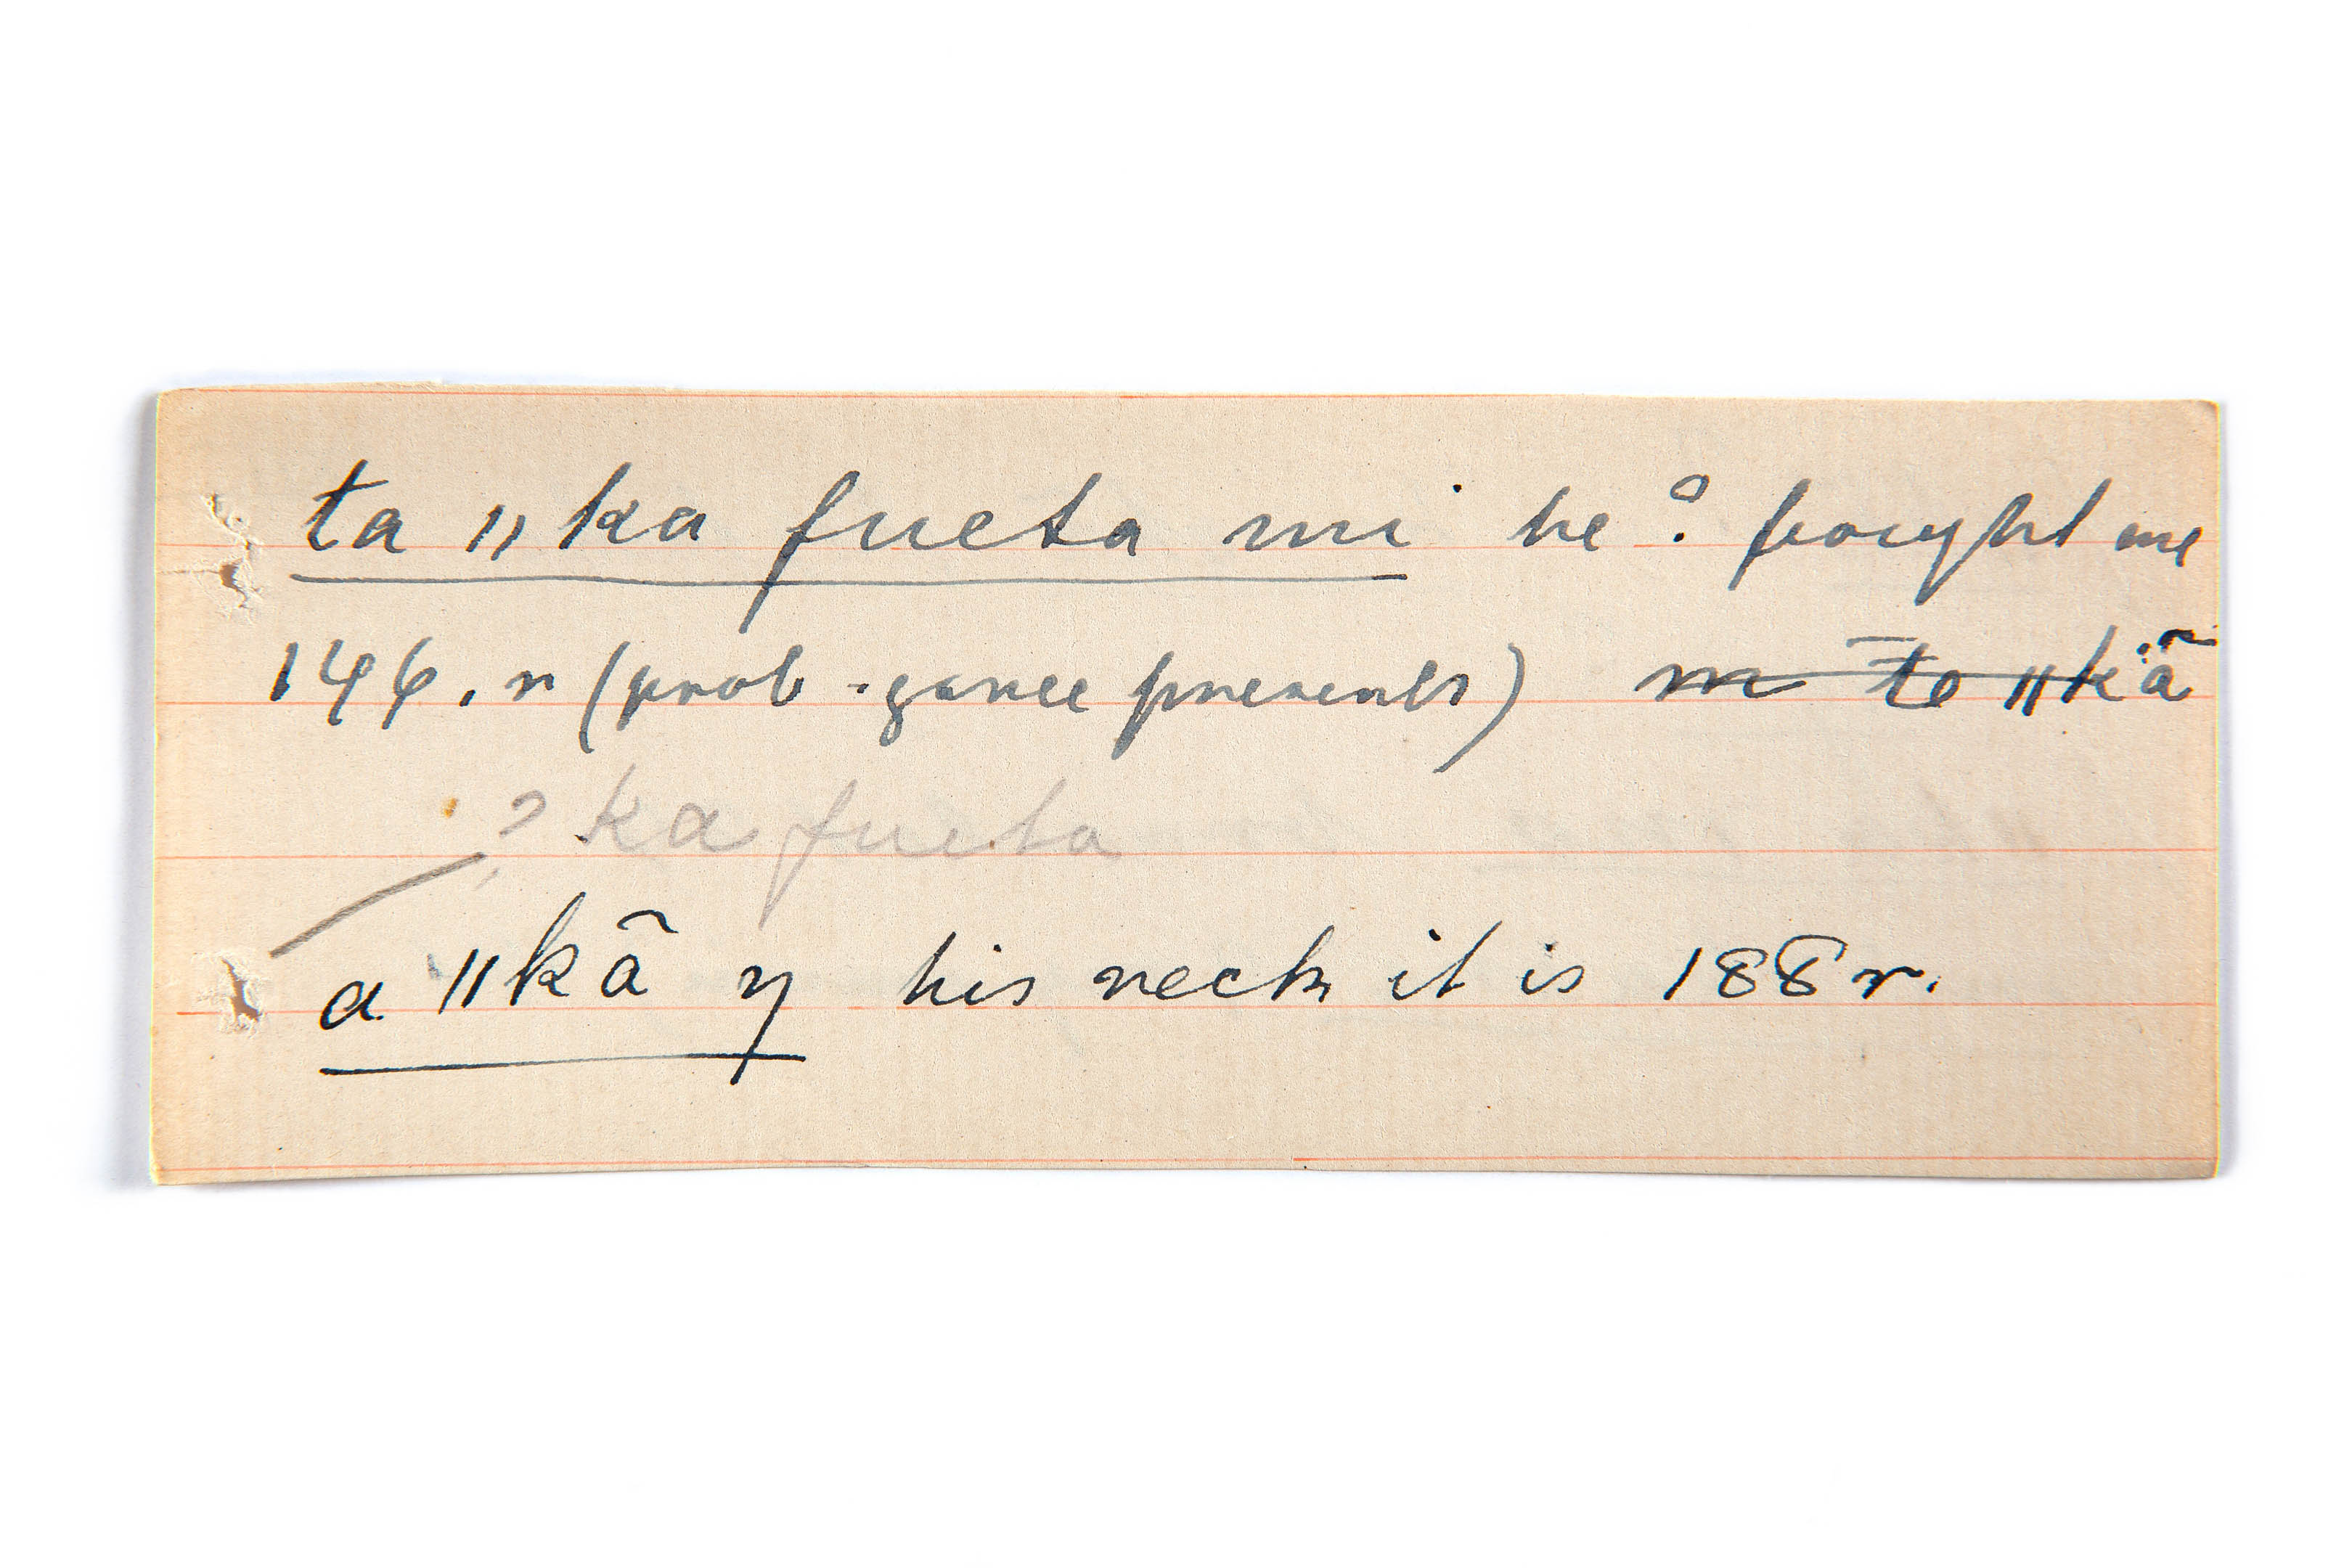 ta ǁka fueta mi he ? fought me
146. r (prob. gave presents) m te ǁkã
? ka fueta
a ǁkã y his neck it is 188 r.